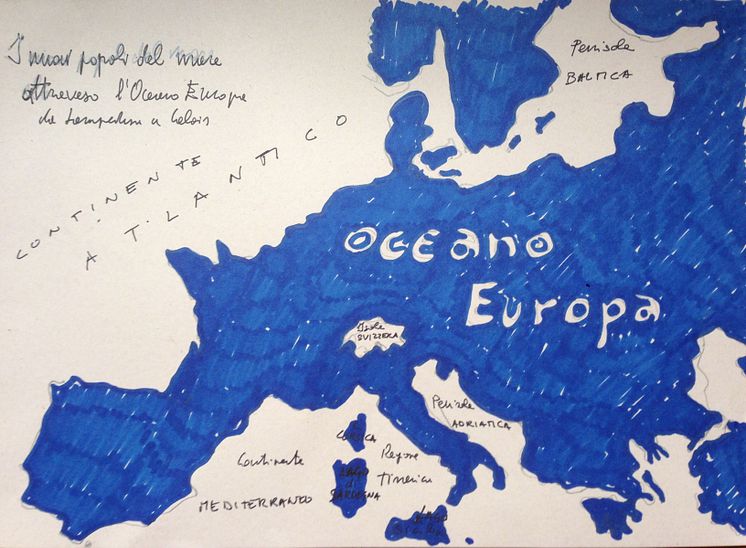 I nuovi popoli del mare
attraverso l'Oceano Europa
da Lampedusa a Calais
CONTINENTE
ATLANTICO
Penisola
BALTICA
OCEANO
EUROPA
Isola
SVIZZERA
Penisola
ADRIATICA
Continente
MEDITERRANEO
CORSICA
LAGO
SARDEGNA
Regione
Tirrenica
LAGO